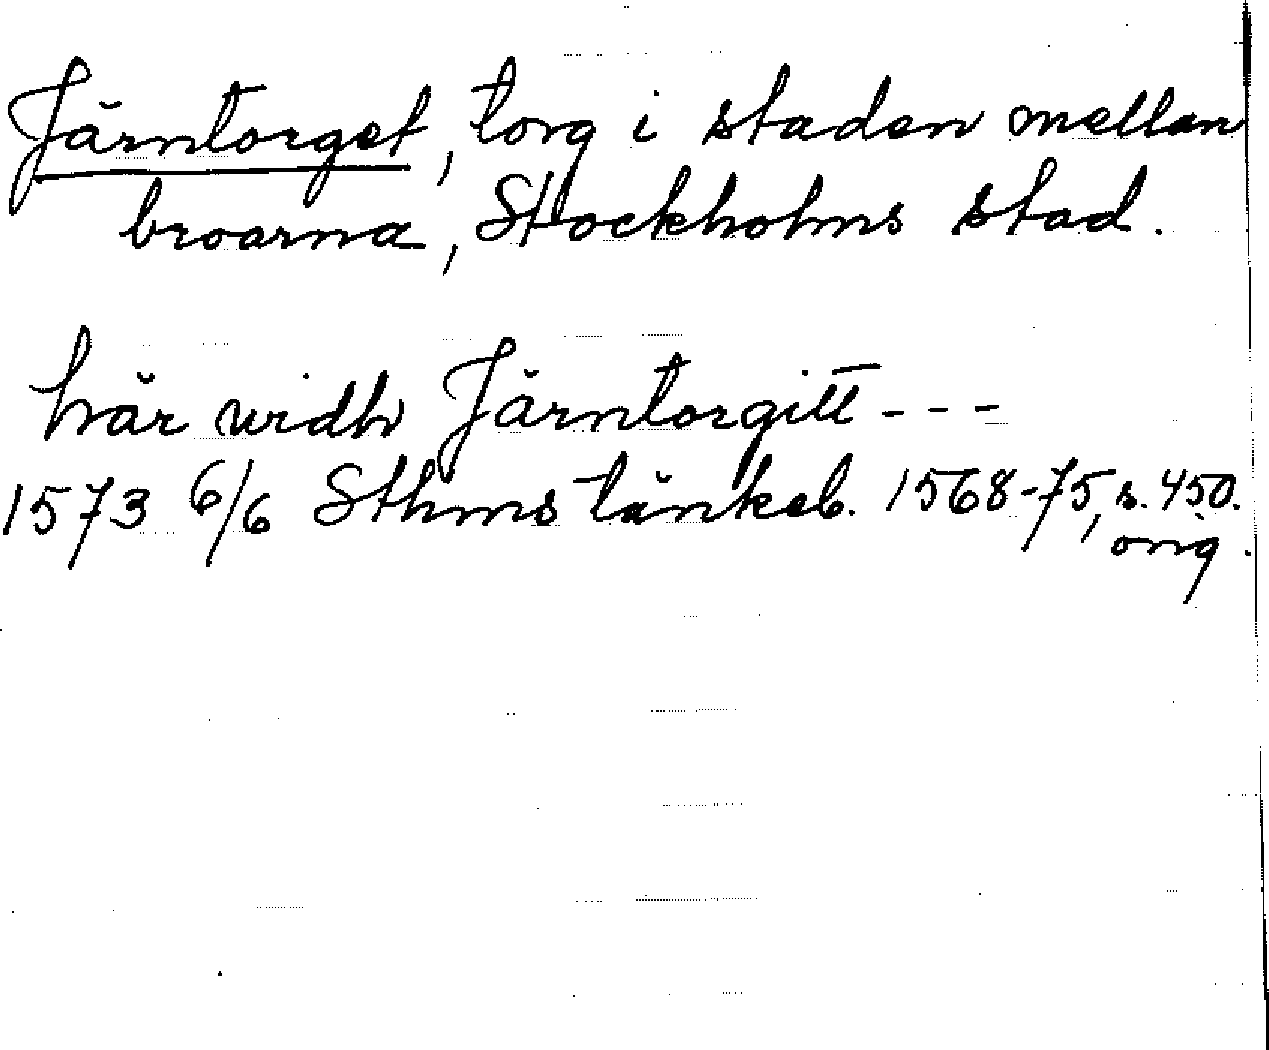 Järntorget, torg i staden mellan
broarna, Stockholms stad.
här widh Järntorgitt - - -
1573 6/6 Sthms tänkeb. 1568-75, s. 450.
orig.